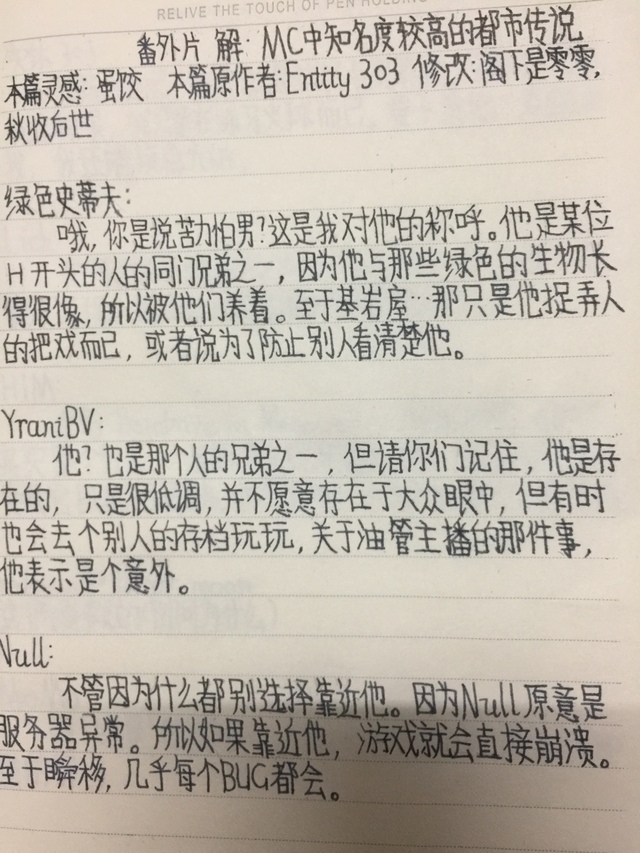 RELIVE THE TOUCH OF PEN HOLDING
番外片 解: MC中知名度较高的都市传说
本篇灵感: 蛋饺 本篇原作者:Entity 303 修改:阁下是零零,
秋收后世
绿色史蒂夫:
哦,你是说苦力怕男?这是我对他的称呼。他是某位
H开头的人的同门兄弟之一,因为他与那些绿色的生物长
得很像,所以被他们养着。至于基岩屋…那只是他捉弄人
的把戏而已,或者说为了防止别人看清楚他。
YraniBV:
他?也是那个人的兄弟之一,但请你们记住,他是存
在的,只是很低调,并不愿意存在于大众眼中,但有时
也会去个别人的存档玩玩,关于油管主播的那件事,
他表示是个意外。
Null:
不管因为什么都别选择靠近他。因为Null原意是
服务器异常。所以如果靠近他,游戏就会直接崩溃。
至于瞬移,几乎每个BUG都会。